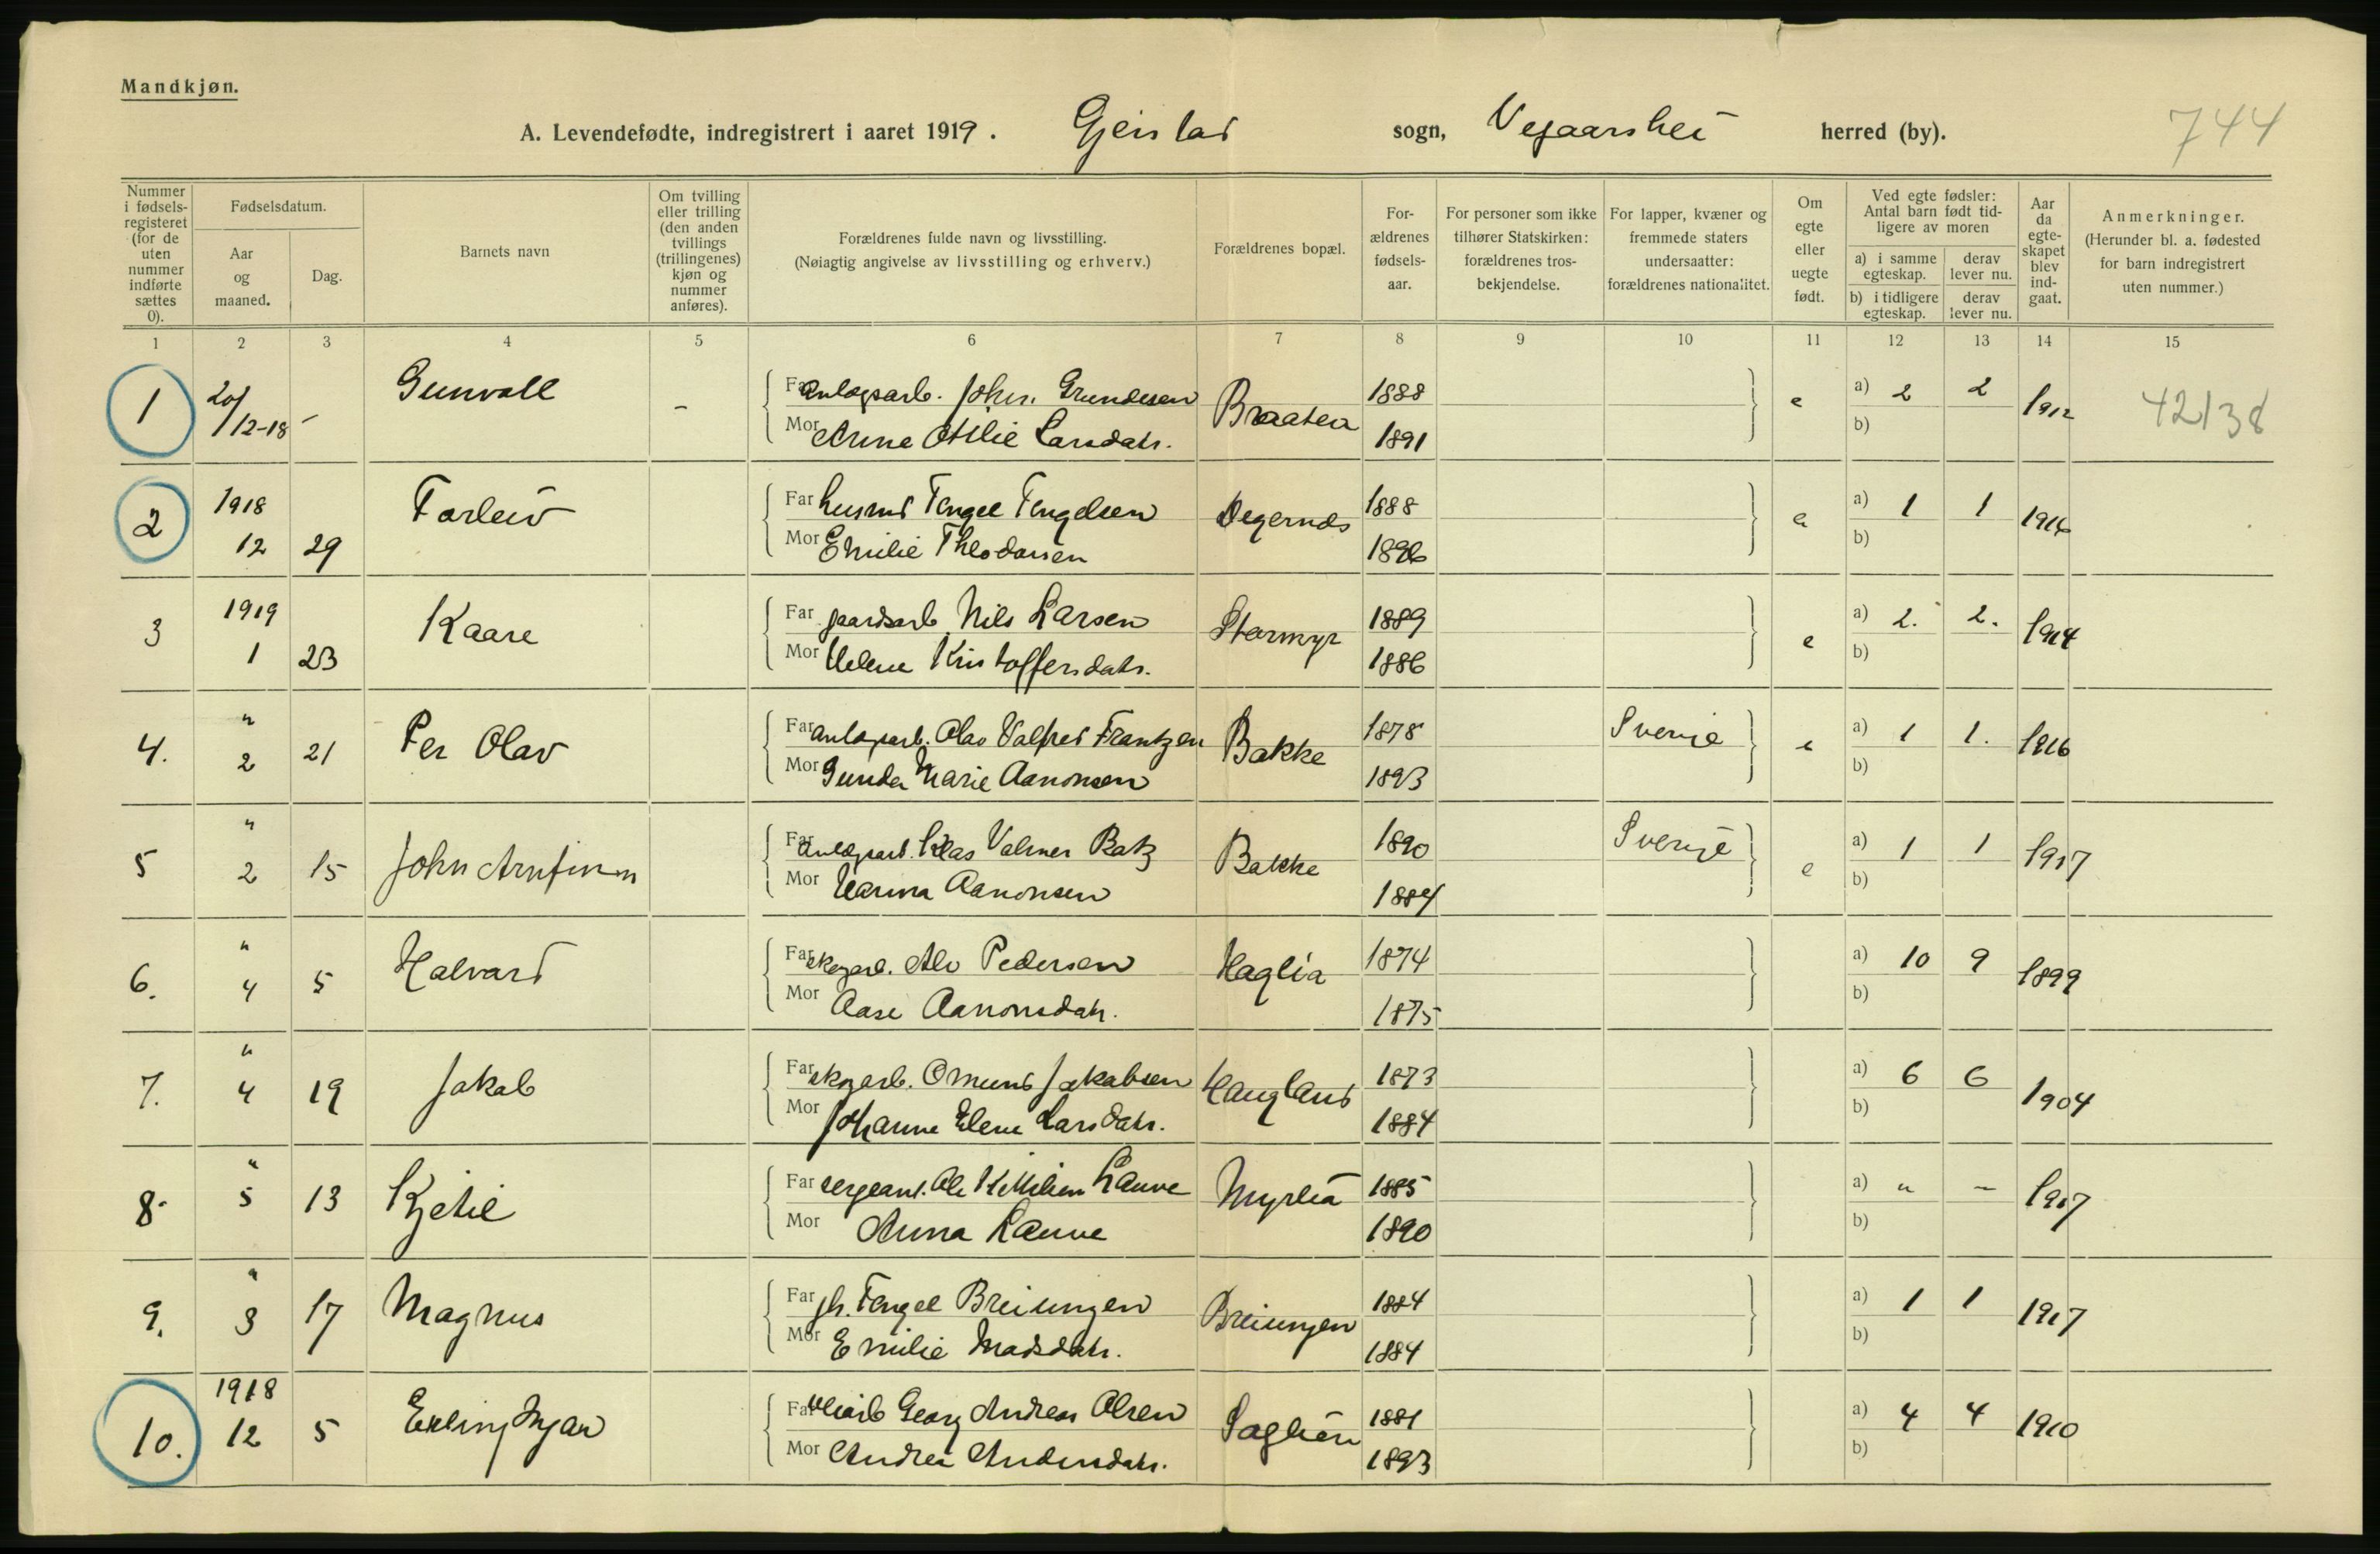 Mandkjøn.
A. Levendefødte, indregistrert i aaret 1919. Gjerstad sogn, Vegaarshei herred (by). 744
Nummer i fødsels-registeret (for de uten nummer indførte sættes 0).
Fødselsdatum.
Aar og maaned.
Dag.
Barnets navn
Om tvilling eller trilling (den anden tvillings (trillingenes) kjøn og nummer anføres).
Forældrenes fulde navn og livsstilling.
(Nøiagtig angivelse av livsstilling og erhverv.)
Forældrenes bopæl.
For-ældrenes fødsels-aar.
For personer som ikke tilhører Statskirken: forældrenes tros-bekjendelse.
For lapper, kvæner og fremmede staters undersaatter: forældrenes nationalitet.
Om egte eller uegte født.
Ved egte fødsler: Antal barn født tid-ligere av moren
a) i samme egteskap. derav lever nu.
b) i tidligere egteskap. derav lever nu.
Aar da egte-skapet blev ind-gaat.
Anmerkninger.
(Herunder bl. a. fødested for barn indregistrert uten nummer.)
1 2 3 4 5 6 7 8 9 10 11 12 13 14 15
1 20/12-18 - Gunvall - Far anlægsarb. John. Grundesen Braaten 1888 e a) 2 2 1912 42138
Mor Anne Otilie Larsdatr. 1891 b)
2 1918 12 29 Torleiv Far husmd Tengel Tengelsen Degernes 1888 e a) 1 1 1916
Mor Emilie Theodorsen 1896 b)
3 1919 1 23 Kaare Far gaardsarb Nils Larsen Stormyr 1889 e a) 2. 2. 1914
Mor Helene Kristoffersdatr. 1886 b)
4. " 2 21 Per Olav Far anlægsarb. Olav Valfred Frantzen Bakke 1878 Sverige e a) 1 1. 1916
Mor Gunda Marie Aanonsen 1893 b)
5 " 2 15 John Arnfinn Far anlægsarb. Klas Valmer Ratz Bakke 1890 Sverige e a) 1 1 1917
Mor Hanna Aanonsen 1884 b)
6. " 4 5 Halvard Far skogarb. Alv Pedersen Haglia 1874 a) 10 9 1899
Mor Aase Aanonsdatr. 1875 b)
7. " 4 19 Jakob Far skogarb. Omund Jakobsen Haugland 1873 a) 6 6 1904
Mor Johanne Elene Larsdatr. 1884 b)
8. " 5 13 Kjetil Far sergeant. Ole Kittilsen Lauve Myrlia 1885 a) " - 1917
Mor Anna Lauve 1890 b)
9. " 3 17 Magnus Far gh. Tengel Breiungen Breiungen 1884 a) 1 1 1917
Mor Emilie Madsdatr. 1884 b)
10. 1918 12 5 Erling Far Georg Andreas Olsen 1881 a) 4 4 1910
Mor Andrea Andersdatr. 1893 b)